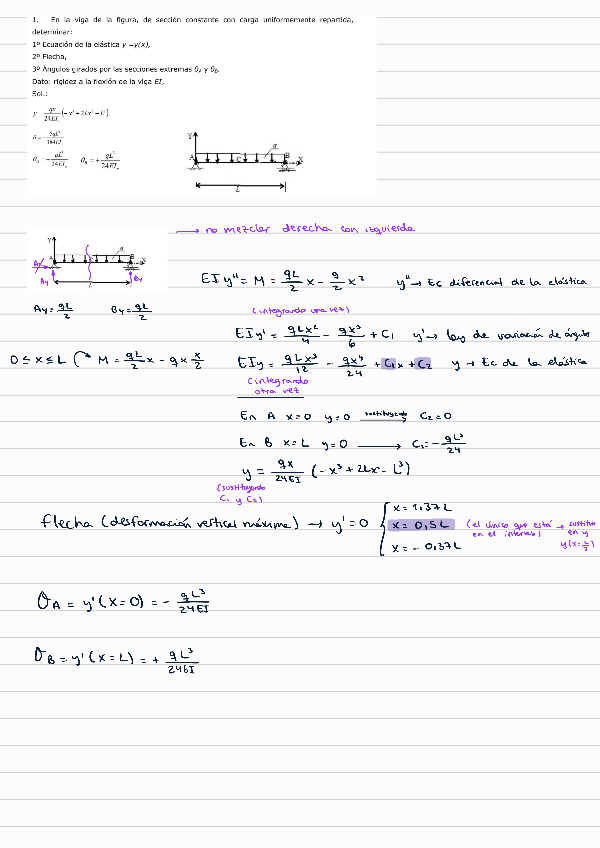 1. En la viga de la figura, de sección constante con carga uniformemente repartida,
determinar:
1º Ecuación de la elástica y =y(x),
2º Flecha,
3º Ángulos girados por las secciones extremas θA y θB.
Dato: rigidez a la flexión de la viga EI,
Sol.:
y = qx/24EIz (-x³ + 2Lx² - L³)
δ = -5qL⁴/384EI
θA = -qL³/24EIz θB = +qL³/24EIz
Y
A C q B X
L
→ no mezclar derecha con izquierda
Y
A q B X
Ay By
Ay = qL/2 By = qL/2
EI y'' = M = qL/2 x - q/2 x² y'' → Ec diferencial de la elástica
(integrando una vez)
EIy' = qLx²/4 - qx³/6 + C1 y' → ley de variación de ángulo
0 ≤ x ≤ L M = qL/2 x - qx x/2
EIy = qLx³/12 - qx⁴/24 + C1x + C2 y → Ec de la elástica
(integrando
otra vez)
En A x=0 y=0 sustituyendo → C2=0
En B x=L y=0 → C1=-qL³/24
y = qx/24EI (-x³ + 2Lx² - L³)
(sustituyendo
C1 y C2)
flecha (desformación vertical máxima) → y'=0
x = 1,37L
x = 0,5L (el único que está en el intervalo) → sustituir en y y(x=L/2)
x = -0,37L
θA = y'(x=0) = - qL³/24EI
θB = y'(x=L) = + qL³/24EI